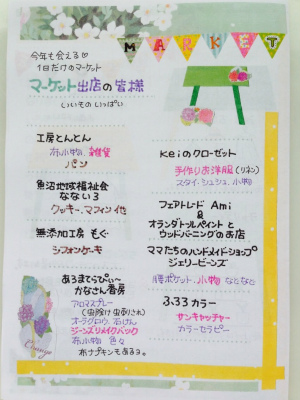 MARKET
今年も会える♡
1日だけのマーケット
マーケット出店の皆様
いいもの いっぱい
工房とんとん
布小物、雑貨
パン
魚沼地域福祉会
なない3
クッキー、マフィン 他
無添加工房 もぐ
シフォンケーキ
あろまてらぴぃ〜
かなさん香房
アロマスプレー
(虫除け 虫刺され)
オーラグロウ、石けん
ジーンズリメイクバック
布小物 色々
布ナプキンもあるョ。
Keiのクローゼット
手作りお洋服(リネン)
スタイ・シュシュ、小物
フェアトレード Ami
&
オランダトルペイントと
ウッドバーニングのお店
ママたちのハンドメイドショップ
ジェリービーンズ
腰ポケット、小物 などなど
3.33 カラー
サンキャッチャー
カラーセラピー